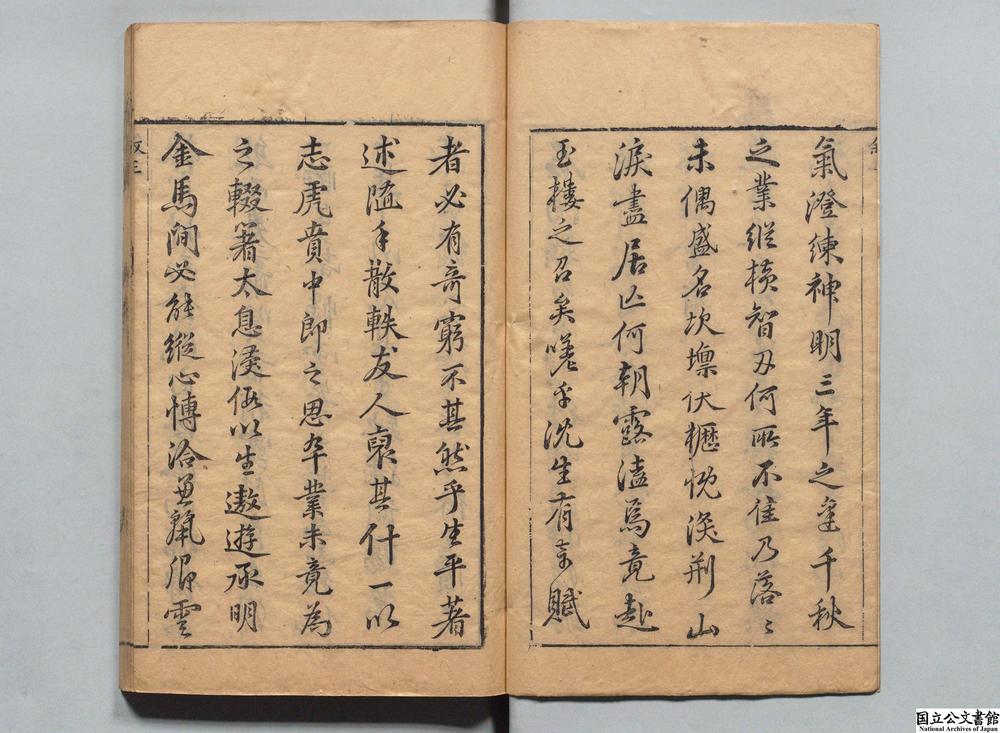 氣澄練神明三年之室千秋
之業縱橫智刃何所不佳乃落〻
未偶盛名坎壈伏櫪忱淚荆山
淚盡居亡何朝露溘焉竟赴
玉樓之召矣嗟乎沈生有奇賦
者必有奇窮不其然乎生平著
述隨手散軼友人裒其什一以
志虎賁中郎之思卒業未竟為
之輟箸太息漢儀以生遨遊承明
金馬間必能縱心愽洽兼麗卿雲
敘三
国立公文書館
National Archives of Japan